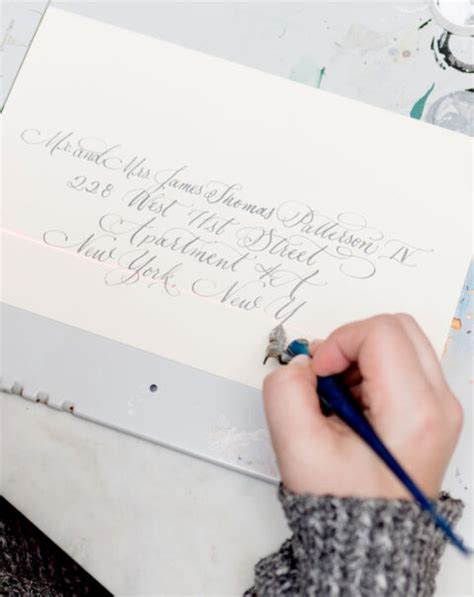 Mr. and Mrs. James Thomas Patterson IV
228 West 71st Street
Apartment 4A
New York, New Y